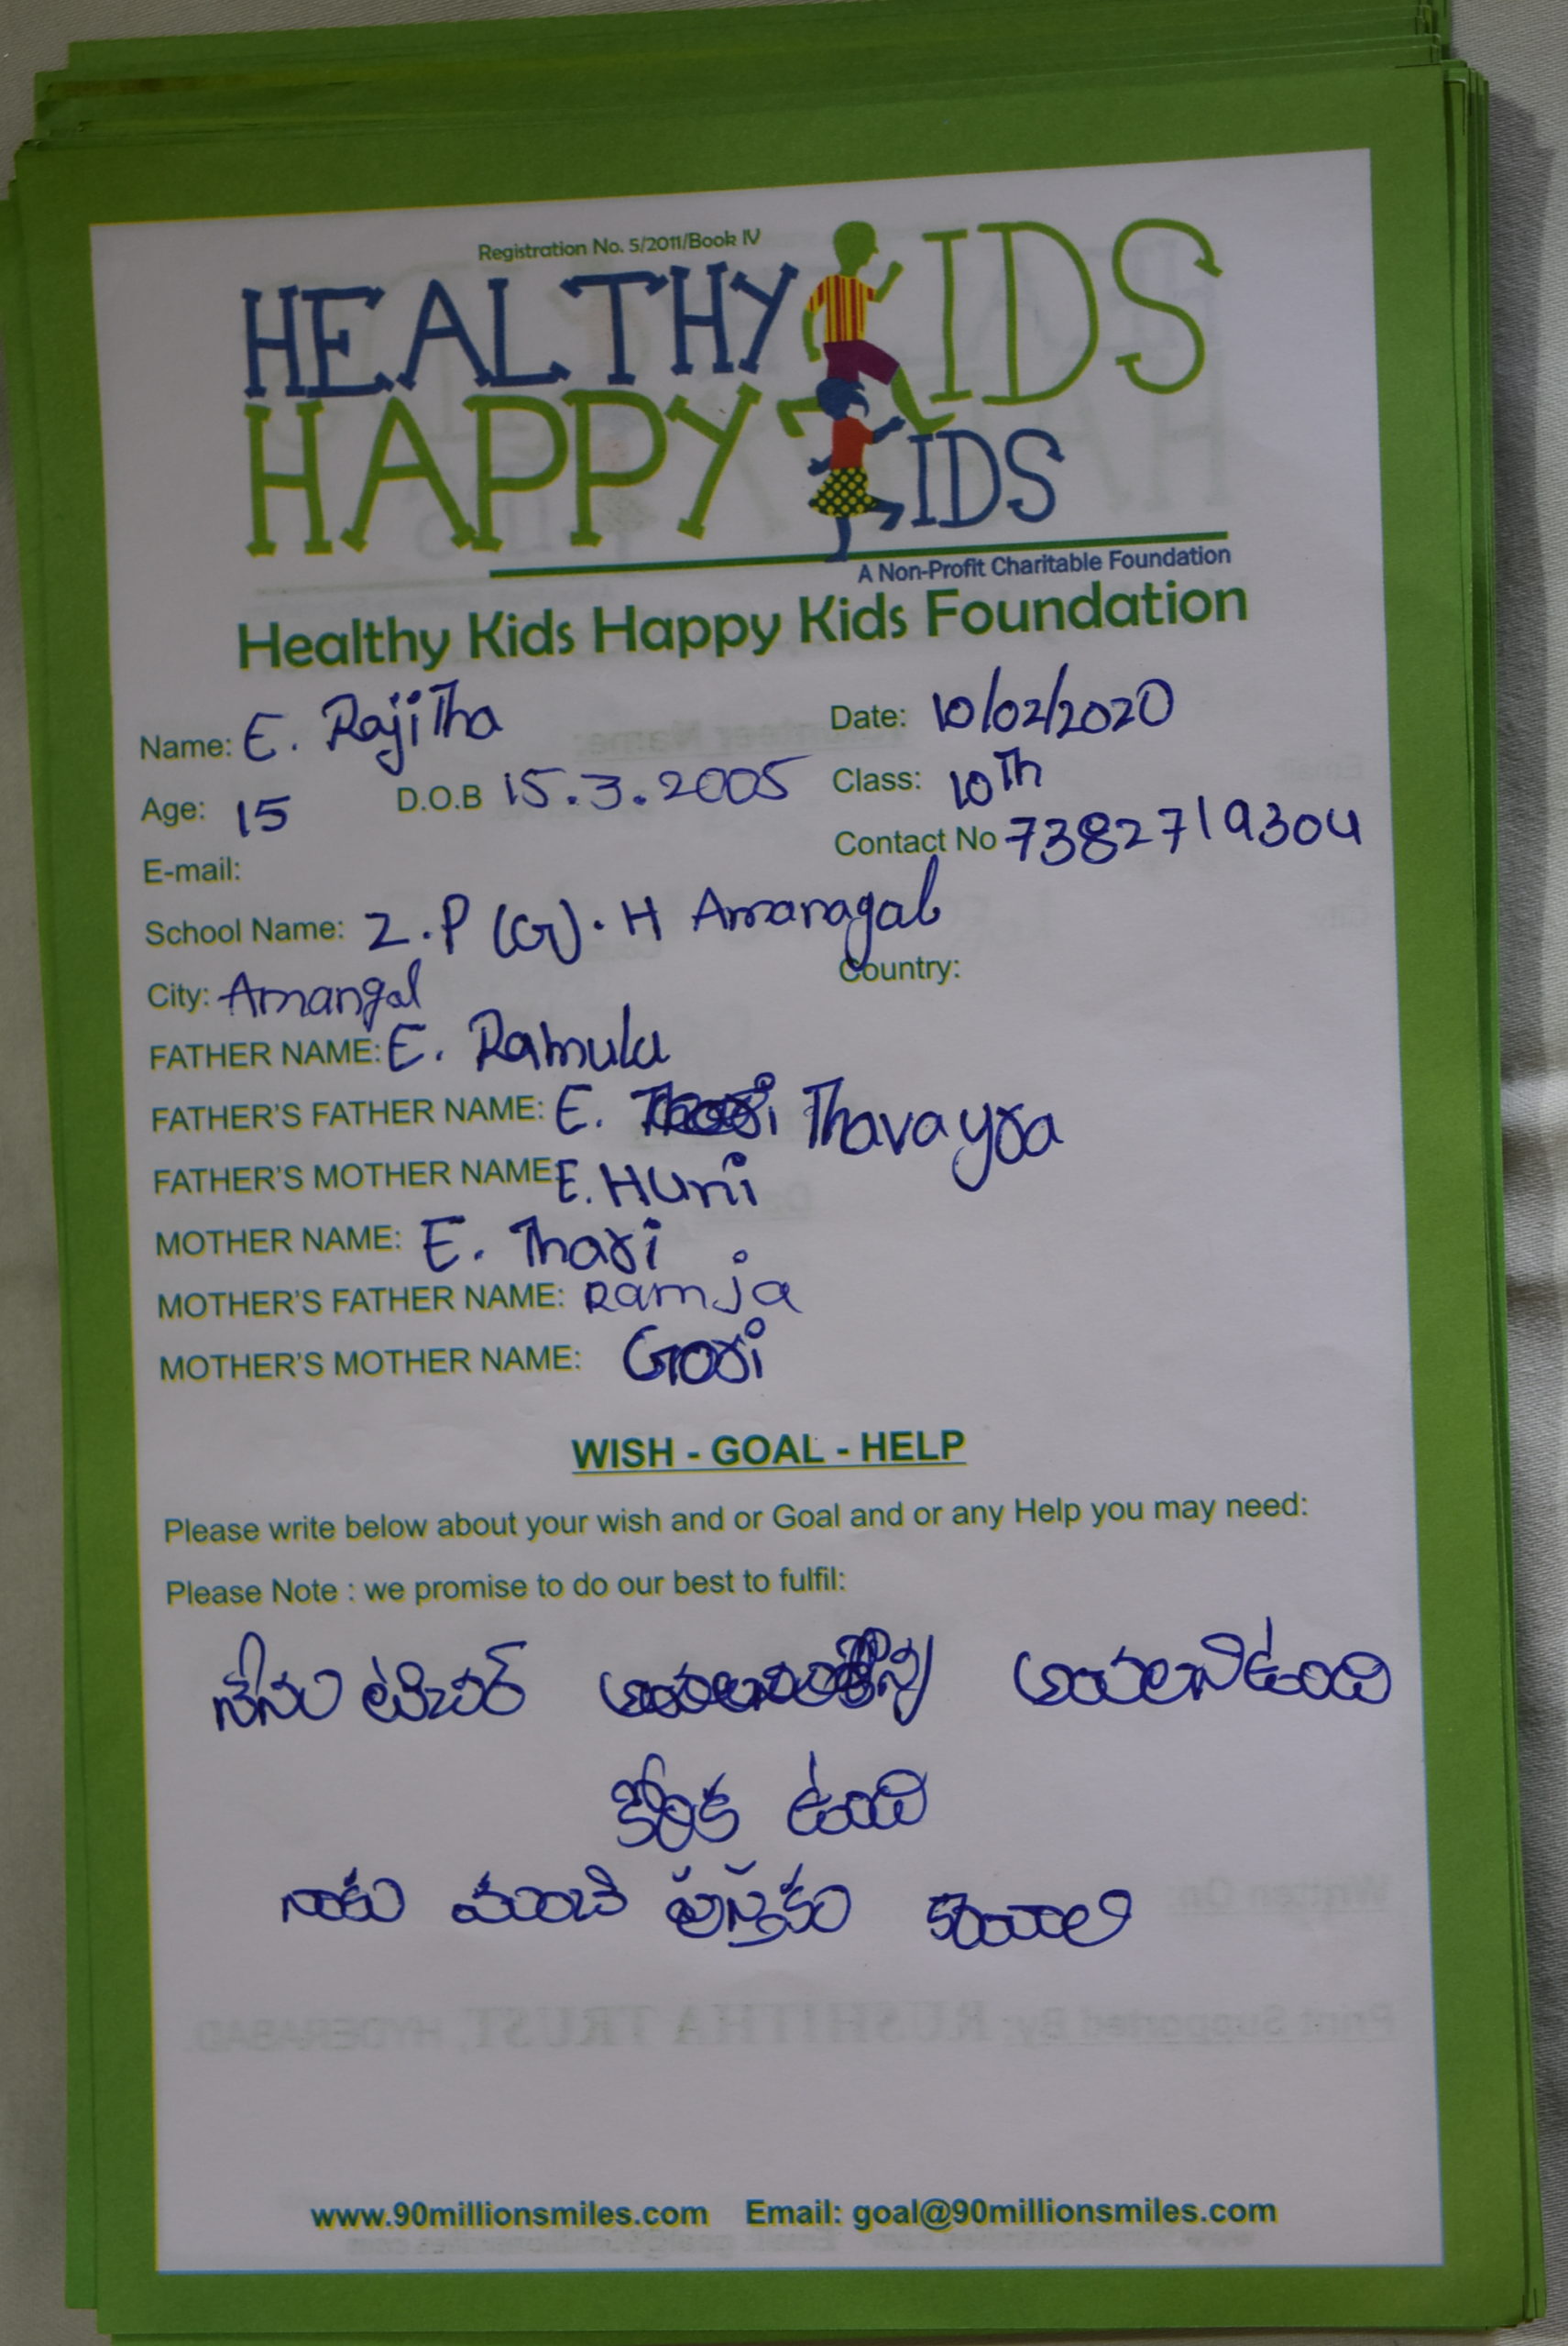 Registration No. 5/2011/Book IV
HEALTHY KIDS
HAPPY KIDS
A Non-Profit Charitable Foundation
Healthy Kids Happy Kids Foundation
Name: E. Rajitha Date: 10/02/2020
Age: 15 D.O.B 15.3.2005 Class: 10Th
E-mail: Contact No 7382719304
School Name: Z.P (G).H Amanagal
City: Amangal Country:
FATHER NAME: E. Ramulu
FATHER'S FATHER NAME: E. Thavayra
FATHER'S MOTHER NAME: E. Huni
MOTHER NAME: E. Thari
MOTHER'S FATHER NAME: Ramja
MOTHER'S MOTHER NAME: Gori
WISH - GOAL - HELP
Please write below about your wish and or Goal and or any Help you may need:
Please Note : we promise to do our best to fulfil:
నేను టిచర్ అవలనిఉంది
కోరిక ఉంది
నాకు మంచి పుస్తకం కావాలి
Print Supported By: RUSHITHA TRUST, HYDERABAD.
www.90millionsmiles.com Email: goal@90millionsmiles.com